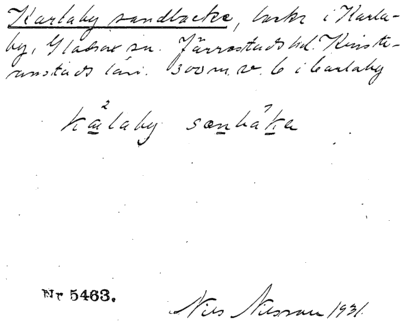 Karlaby sandbacke, backe i Karla-
by, Gladsax sn. Järrestads hd. Kristi-
anstads län. 300 m. v. b i Karlaby
kälaby sænbáka
Nr 5463.
Nils Nilsson 1931.